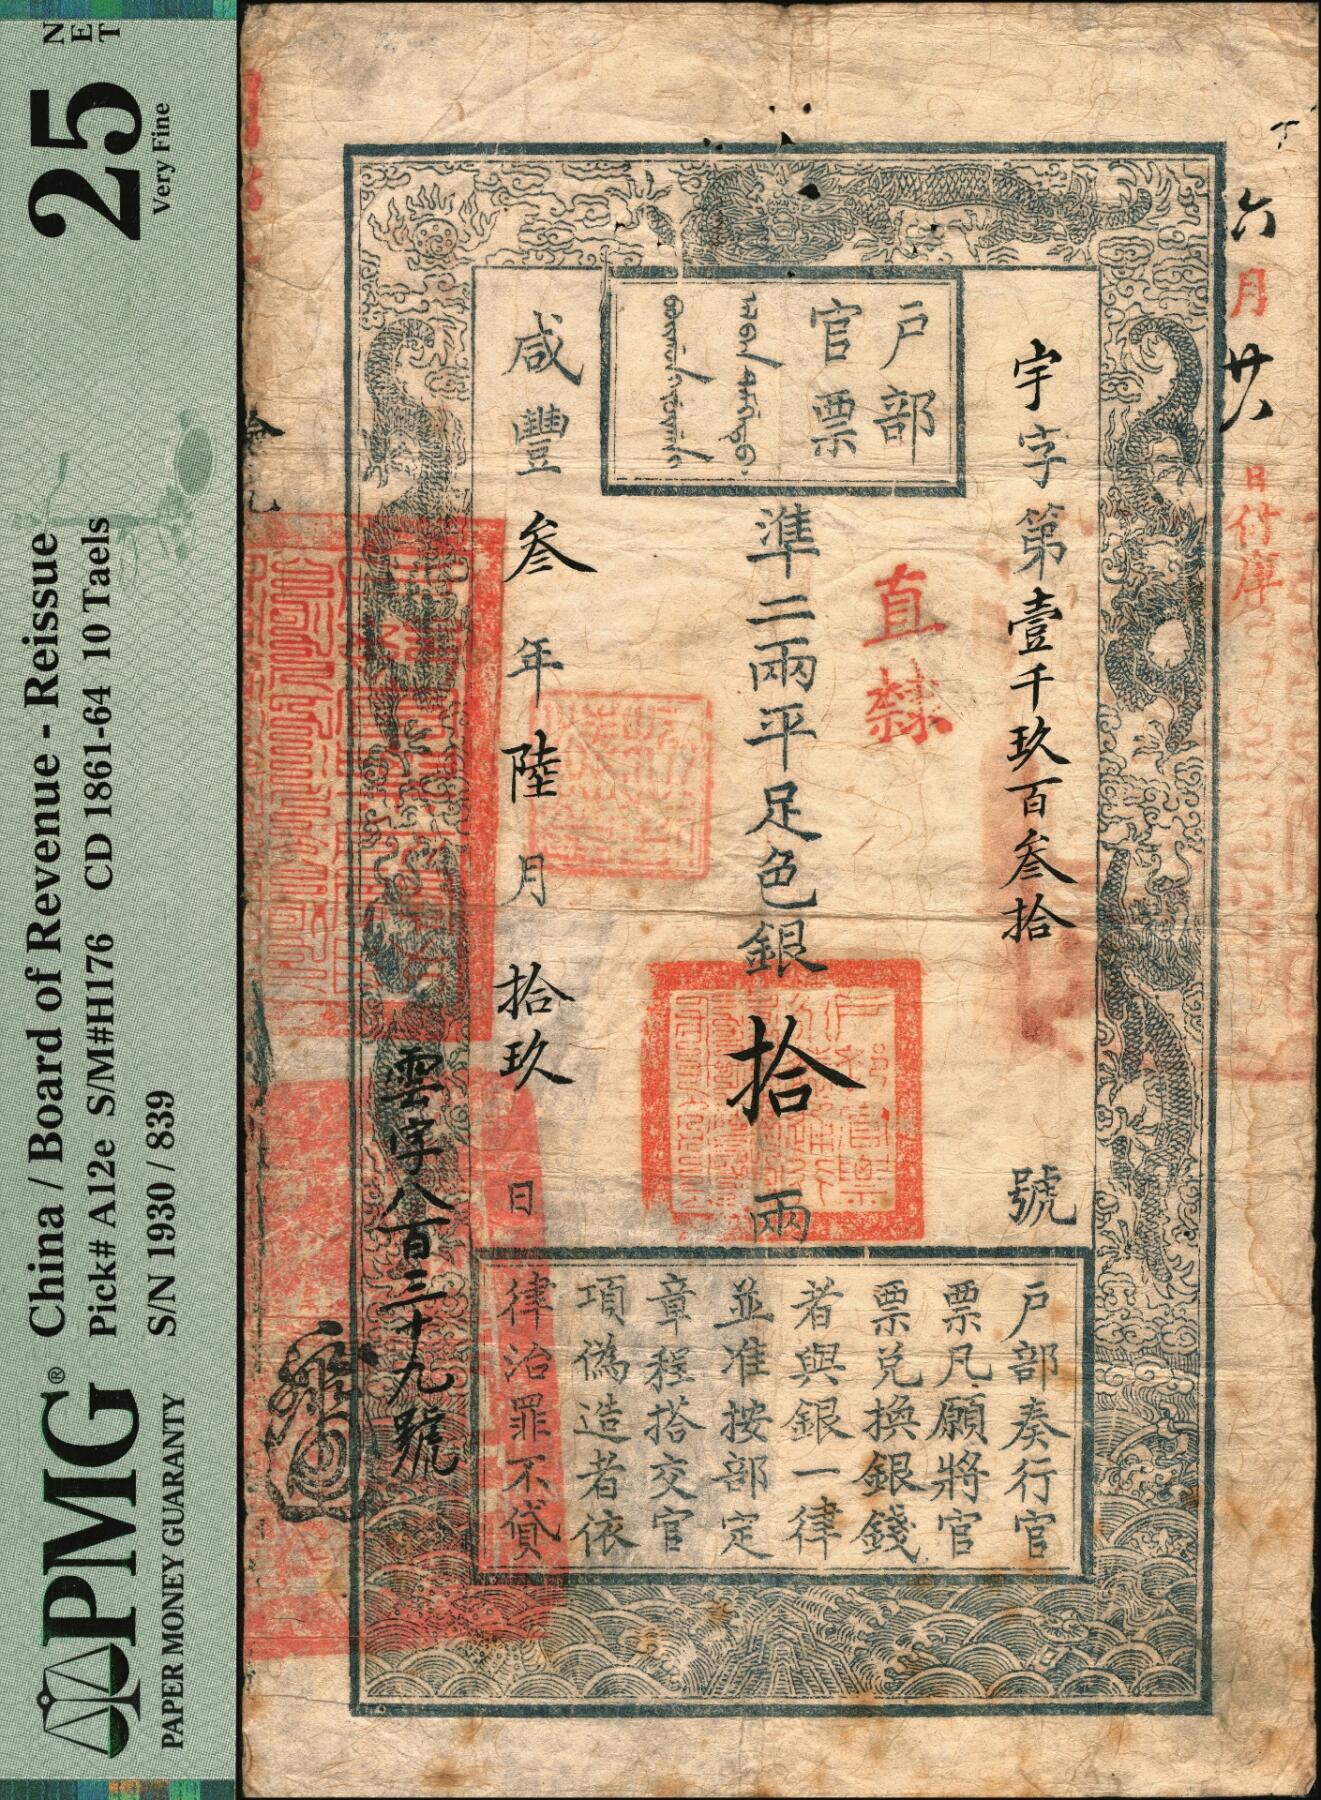 PMG®
PAPER MONEY GUARANTY
China / Board of Revenue - Reissue
Pick# A12e S/M#H176 CD 1861-64 10 Taels
S/N 1930 / 839
25
Very Fine
NET
六月廿八日付庫
宇字第壹千玖百叁拾號
戶部
官票
直隸
準二兩平足色銀拾兩
咸豐叁年陸月拾玖日
雲字八百三十九號
戶部奏行官
票凡願將官
票兌換銀錢
者與銀一律
並准按部定
章程搭交官
項偽造者依
律治罪不貸